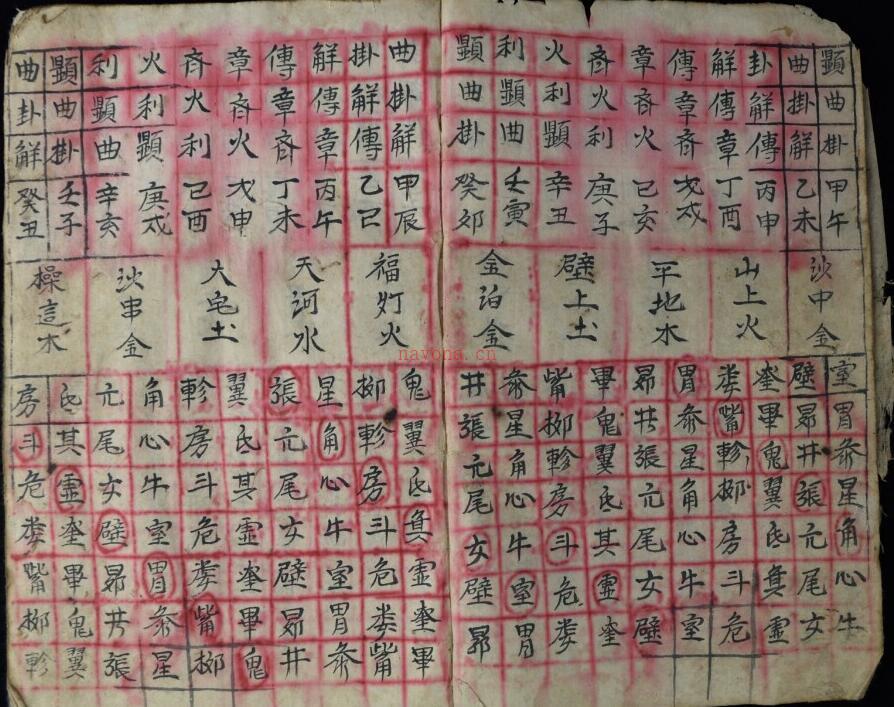 顯曲掛甲午
曲掛觧乙未
卦觧傳丙申
觧傳章丁酉
傳章斉戊戌
章斉火已亥
斉火利庚子
火利顯辛丑
利顯曲壬寅
顯曲卦癸夘
沙中金
山上火
平地木
壁上土
金泊金
室胃參星角心牛
壁昴井張亢尾女
奎畢鬼翼氐箕虛
娄觜軫柳房斗危
胃參星角心牛室
昴井張亢尾女壁
畢鬼翼氐其虛奎
觜柳軫房斗危娄
參星角心牛室胃
井張亢尾女壁昴
曲掛觧甲辰
掛觧傳乙巳
觧傳章丙午
傳章斉丁未
章斉火戊申
斉火利已酉
火利顯庚戌
利顯曲辛亥
顯曲掛壬子
曲卦觧癸丑
福灯火
天河水
大宅土
沙串金
操這木
鬼翼氐箕虛奎畢
柳軫房斗危娄觜
星角心牛室胃參
張亢尾女壁昴井
翼氐其虛奎畢鬼
軫房斗危娄觜柳
角心牛室胃參星
亢尾女壁昴井張
氐其虛奎畢鬼翼
房斗危娄觜柳軫
navona.cn